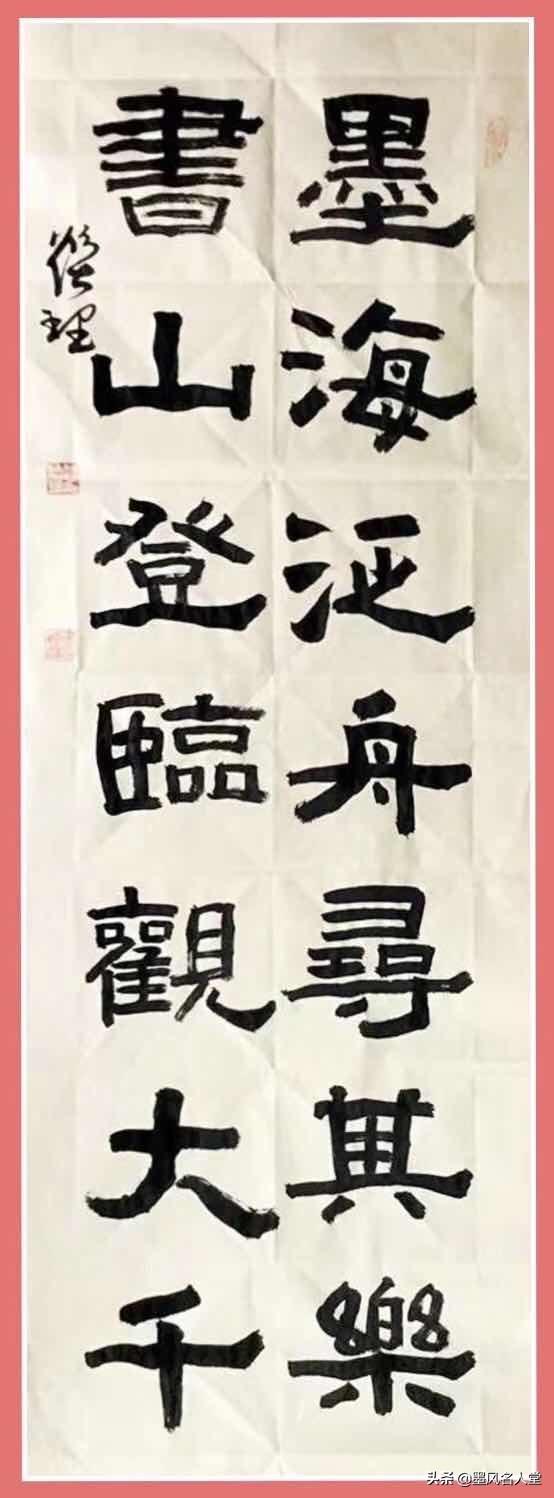 墨海泛舟尋其樂
書山登臨觀大千
理
头条 @墨风名人堂